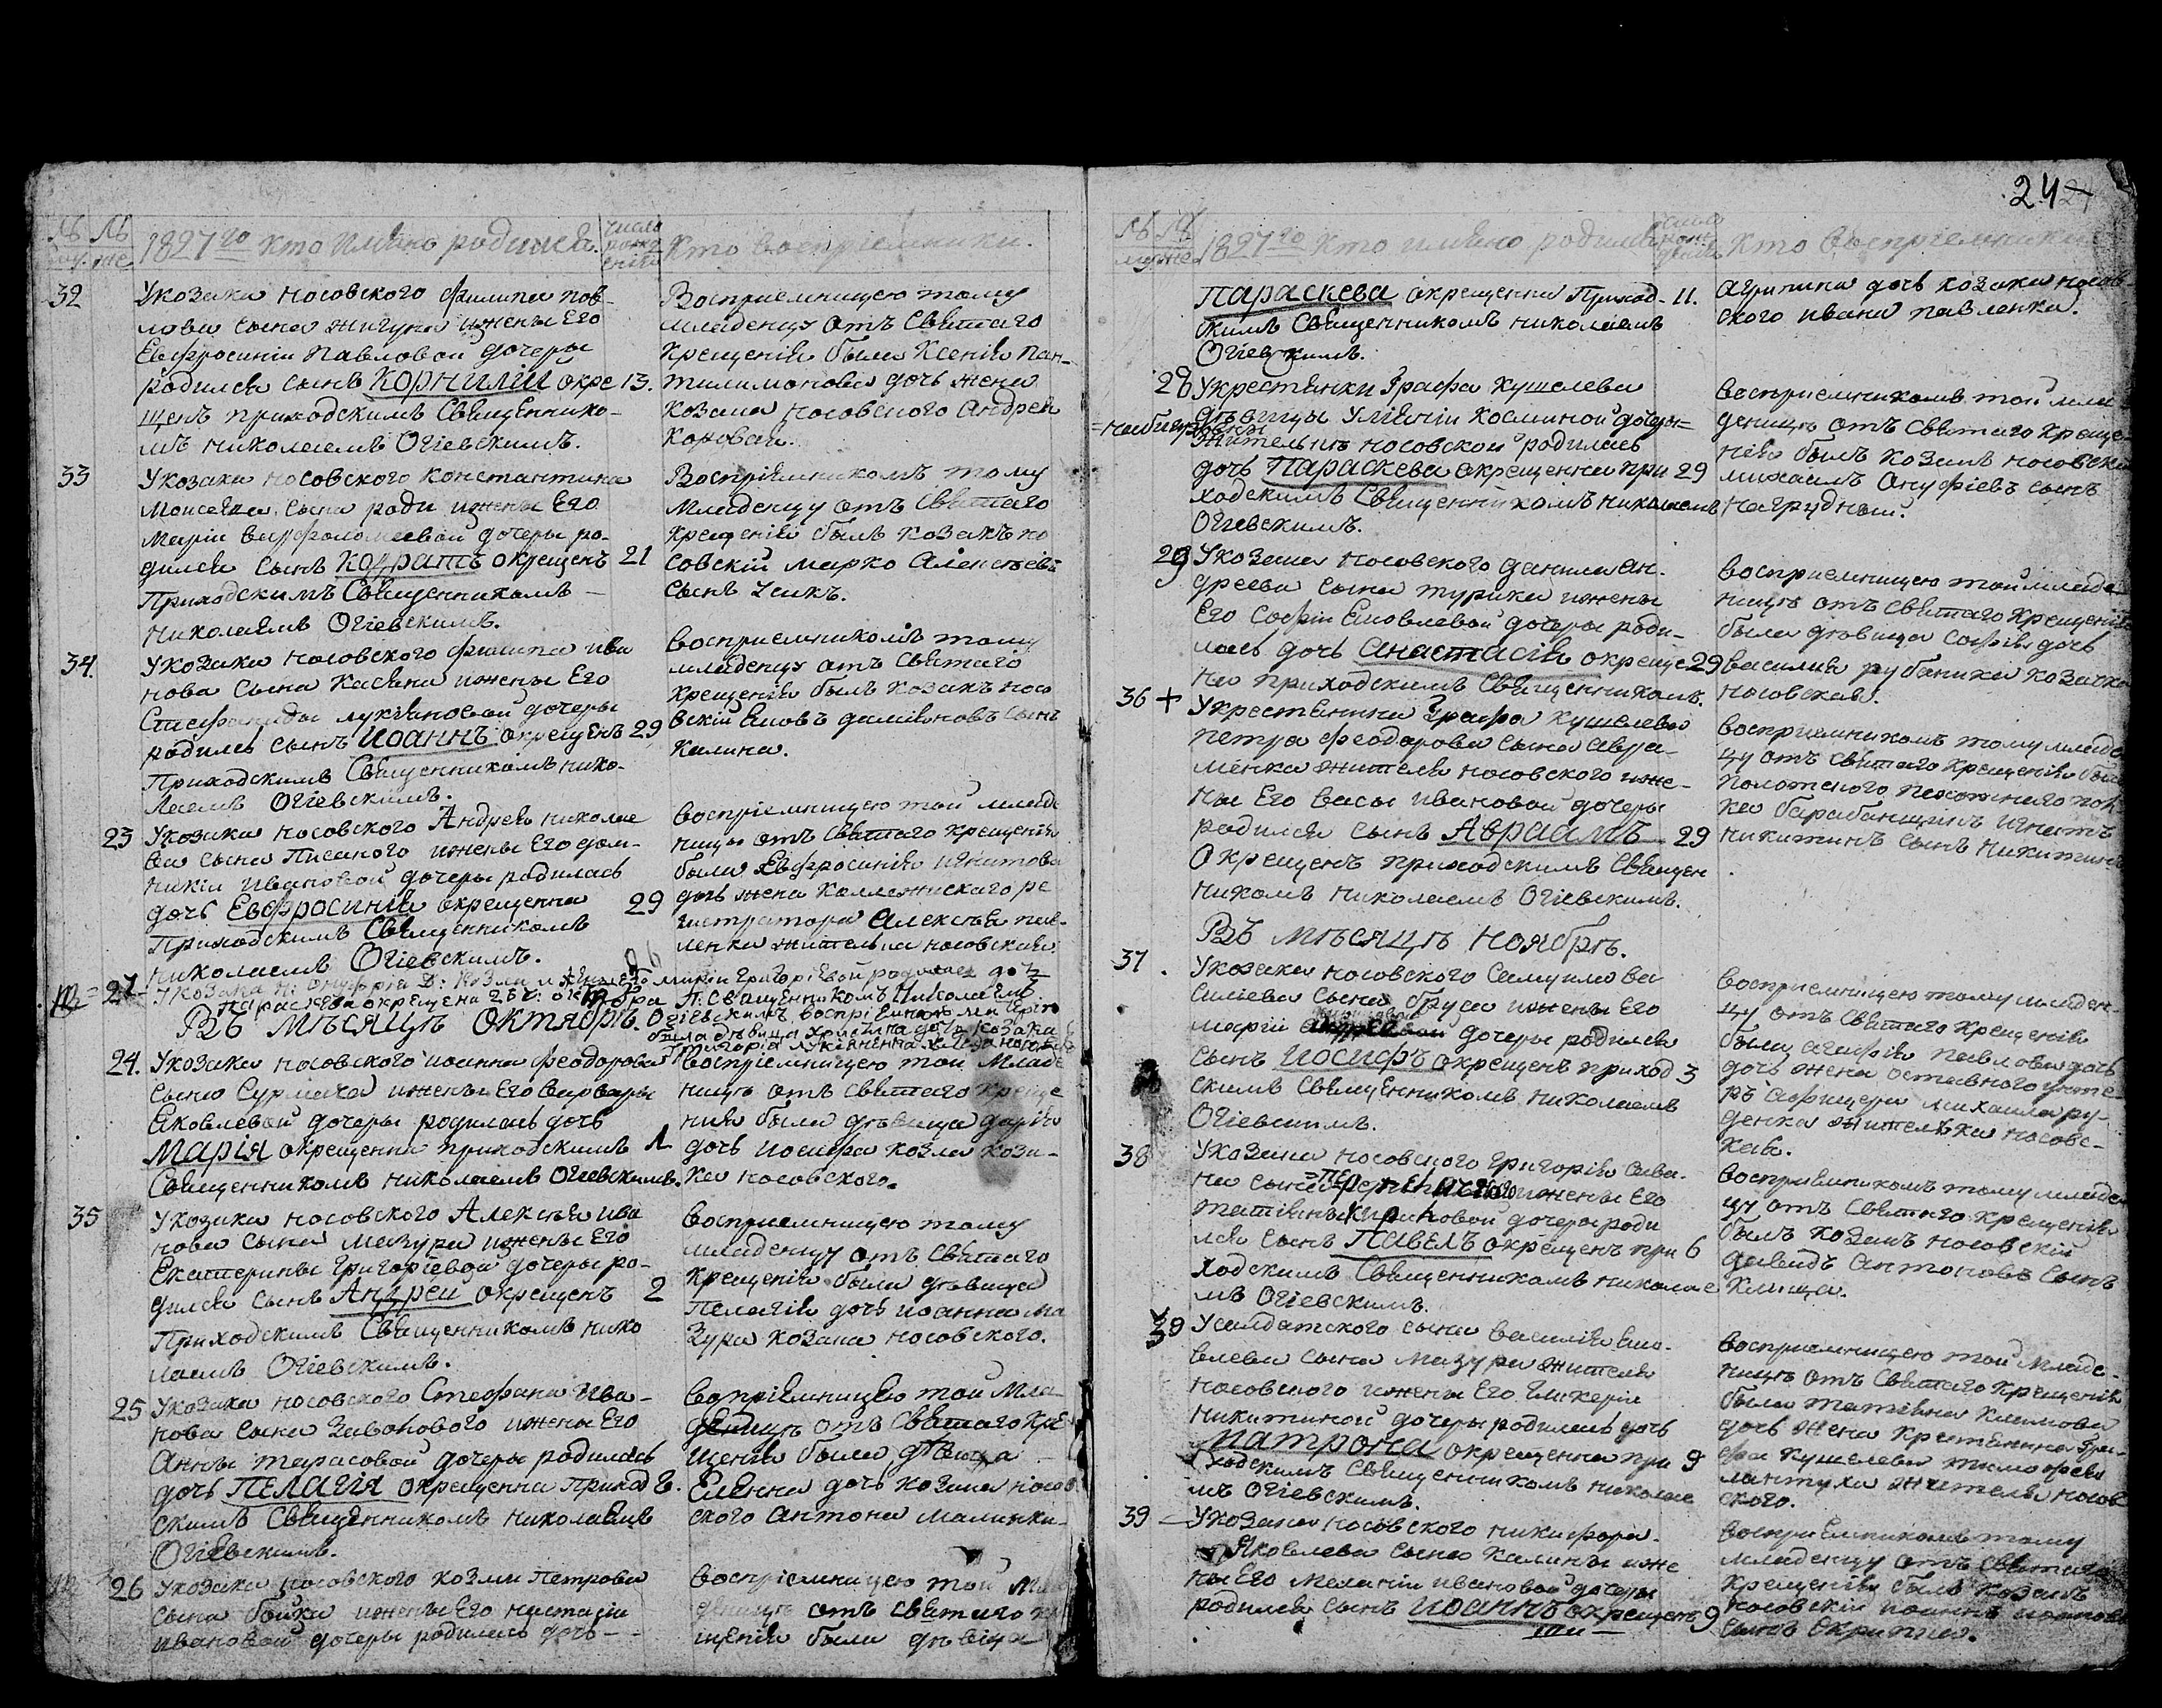 24
1827го кто имяно родился.
число рожденія
кто восприемники.
32
У козака носовского филипа пав-
лова сына жигуна и жены Его
Евфросиніи Павловой дочеры
родился сынъ Корнилій окре 13.
щенъ приходскимъ Священнико-
мъ николаемъ Огіевскимъ.
Восприемницею тому
младенцу отъ Святаго
крещенія была Ксенія Пан-
тилимонова дочь жена
козака носовского Андрея
Коровая.
33
У козака носовского Константина
Моисеева сына роди и жены Его
Маріи варфоломеевой дочеры ро-
дился сынъ Кодратъ окрещенъ 21
Приходскимъ Священникомъ
николаемъ Огіевскимъ.
Воспріемникомъ тому
младенцу отъ Святаго
крещенія былъ козакъ но
совскій марко Алексѣевъ
сынъ
34.
У козака носовского филипа ива
нова сына Касяна и жены Его
Стефаниды лукяновой дочеры
родился сынъ Иоаннъ окрещенъ 29
Приходскимъ Священникомъ нико-
лаемъ Огіевскимъ.
восприемникомъ тому
младенцу отъ Святаго
крещенія былъ козакъ носо
вскій Яковъ даміановъ сынъ
Калина.
23
У козака носовского Андрея николае
ва сына Писаного и жены Его дом-
никіи ивановой дочеры родилась
дочь Евфросинія окрещенна 29
Приходскимъ Священникомъ
николаемъ Огіевскимъ.
воспріемницею той младе
ницѣ отъ Святаго крещенія
была Евфросинія игнатова
дочь жена Коллежискаго ре
гистратора Алексѣя пав-
ленка жителька носовская.
27
У козака н: онуфрія Д: Козми и жены Его маріи григоріевой родилась дочь
Параскева окрещена 26 ч: октобра П: Священникомъ Николаемъ
Огіевскимъ воспріемницею
была дѣвица христина дочь козака
григорія лукяненка
Въ мѣсяцѣ Октябрѣ.
24.
У козака носовского иоанна феодорова
сына Сурмача и жены Его варвары
Яковлевой дочеры родилась дочь
Марія окрещенна приходскимъ 1
Священникомъ николаемъ Огіевскимъ.
воспріемницею той младе
ницѣ отъ святаго креще
нія была дѣвица дарія
дочь иосифа козла коза-
ка носовского.
35
У козака носовского Алексѣя ива
нова сына мазура и жены Его
Екатерины григоріевой дочеры ро-
дился сынъ Андрей окрещенъ 2
Приходскимъ Священникомъ нико
лаемъ Огіевскимъ.
восприемницею тому
младенцу отъ Святаго
крещенія была дѣвица
Пелагія дочь иоанна ма
зура козака носовского.
25
У козака носовского Стефана ива-
нова сына Заволового и жены Его
Анны тарасовой дочеры родилась
дочь Пелагія окрещенна Приход 6.
скимъ Священникомъ николаемъ
Огіевскимъ.
вопріемницею той мла-
деницѣ отъ Святаго кре
щенія была дѣвица
Елена дочь козака носов
ского антона малинки
26
У козака носовского козми Петрова
сына бойка и жены Его настасіи
ивановой дочеры родилась дочь
воспріемницею той мла
деницѣ отъ святаго кре
щенія была дѣвица
1827го кто имяно родился
кто воспріемники
Параскева окрещенна Приход- 11.
скимъ Священникомъ николаемъ
Огіевскимъ.
агрипина дочь козака носов
ского ивана павленка.
28
У крестянки Графа кушелева
дѣвицы Уліяніи Косминой дочеры
жительки носовской родилась
дочь Параскева окрещенна при 29
ходскимъ Священникомъ николаемъ
Огіевскимъ.
восприемникомъ той мла
деницѣ отъ Святаго креще-
нія былъ козакъ носовскій
михаилъ Онуфріевъ сынъ
нагрудный.
29
У козака носовского данила ан-
дреева сына турика и жены
Его Софіи Яковлевой дочеры роди-
лась дочь Анастасія окреще 29
на приходскимъ Священникомъ.
восприемницею той младе
ницѣ отъ святаго крещенія
была дѣвица Софія дочь
василия рубаника козачка
носовская.
36 +
У крестянина Графа кушелева
петра феодорова сына авра-
менка жителя носовского и же-
ны Его васы ивановой дочеры
родился сынъ Авраамъ 29
Окрещенъ приходскимъ Священ
никомъ николаемъ Огіевскимъ.
восприемникомъ тому младе
цу отъ Святаго крещенія былъ
Полотского пехотнаго пол
ка барабанщикъ игнатъ
никитинъ сынъ никитинъ
Въ мѣсяцѣ Ноябрѣ.
37
У козака носовского Самуила ва
силіева сына бруса и жены Его
маріи дочеры родился
сынъ Иосифъ окрещенъ приход 3
скимъ Священникомъ николаемъ
Огіевскимъ.
восприемницею тому младен-
цу отъ Святаго крещенія
была агафія павлова дочь
дочь жена отставного унте-
ръ афицера михаила ру-
денка жителька носовс-
кая.
38
У козака носовского григорія сава-
на сына и жены Его
татіаны дочеры роди
лся сынъ Павелъ окрещенъ при 6
ходскимъ Священникомъ николае
мъ Огіевскимъ.
восприемникомъ тому младен
цу отъ Святаго крещенія
былъ козакъ носовскій
давидъ антоновъ сынъ
Клица.
30
У салдатского сына василія Яко-
влева сына мазура жителя
носовского и жены Его гликеріи
никитиной дочеры родилась дочь
Матрона окрещенна при 9
ходскимъ Священникомъ николае
мъ Огіевскимъ.
восприемницею той младе-
ницѣ отъ Святаго крещенія
была татіана климова
дочь жена крестянина гра-
фа кушелева тимофея
лантуха жителя носов
ского.
39
У козака носовского никифора
Яковлева сына калины и же
ны Его меланіи ивановой дочеры
родился сынъ Иоаннъ окрещенъ 9
воспріемникомъ тому
младенцу отъ святаго
крещенія былъ козакъ
носовскій иоаннъ
сынъ